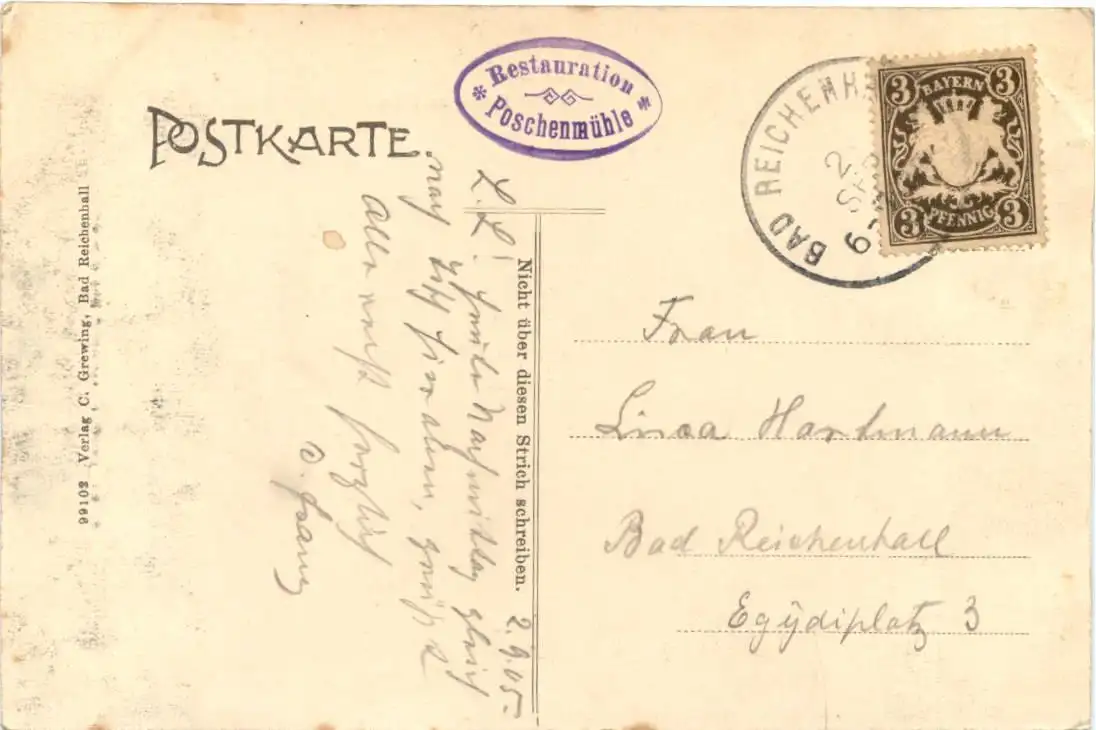 POSTKARTE.
Restauration
* Poschenmühle *
BAD REICHENH
2 SEP
3 BAYERN 3
3 PFENNIG 3
99102 Verlag C. Grewing, Bad Reichenhall
Nicht über diesen Strich schreiben.
2.9.05.
L. L! Heute Nachmittag gleich
nach
Alle
herzlich
Frau
Lina Hartmann
Bad Reichenhall
Egydiplatz 3